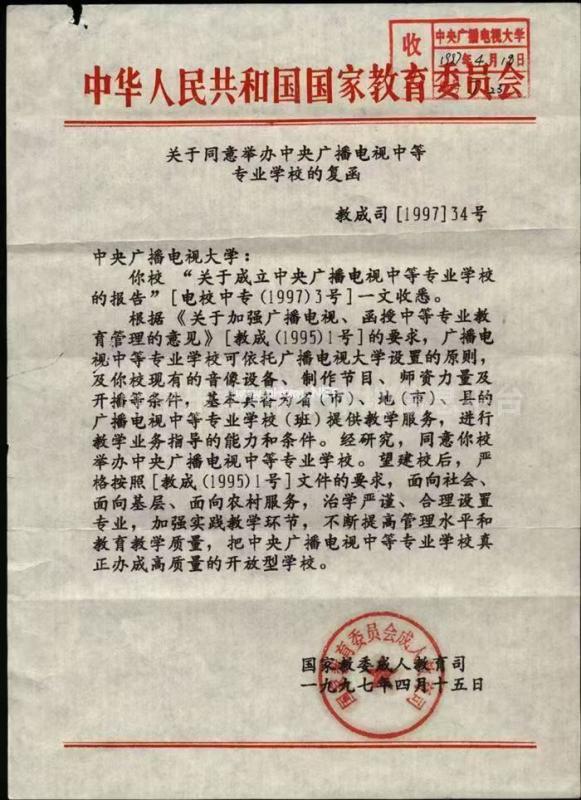 收
中央广播电视大学
1997年4月18日
中华人民共和国国家教育委员会
关于同意举办中央广播电视中等
专业学校的复函
教成司[1997]34号
中央广播电视大学：
你校“关于成立中央广播电视中等专业学校
的报告”[电校中专(1997)3号]一文收悉。
根据《关于加强广播电视、函授中等专业教
育管理的意见》[教成(1995)1号]的要求，广播电
视中等专业学校可依托广播电视大学设置的原则，
及你校现有的音像设备、制作节目、师资力量及
开播等条件，基本具备为省(市)、地(市)、县的
广播电视中等专业学校(班)提供教学服务，进行
教学业务指导的能力和条件。经研究，同意你校
举办中央广播电视中等专业学校。望建校后，严
格按照[教成(1995)1号]文件的要求，面向社会、
面向基层、面向农村服务，治学严谨、合理设置
专业，加强实践教学环节，不断提高管理水平和
教育教学质量，把中央广播电视中等专业学校真
正办成高质量的开放型学校。
国家教育委员会成人教育司
国家教委成人教育司
一九九七年四月十五日